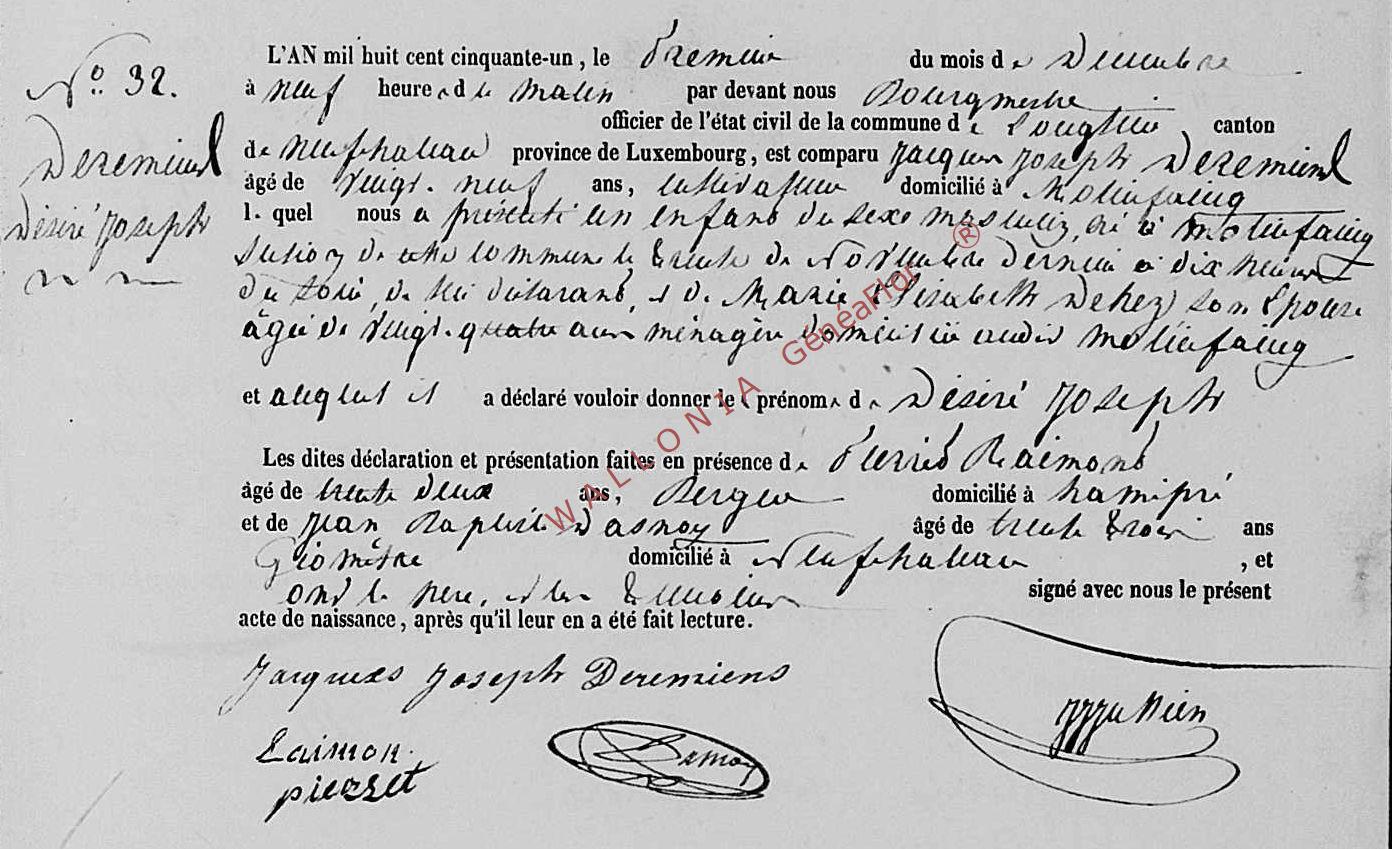 N° 32.
Deremiens
Désiré Joseph
L'AN mil huit cent cinquante-un, le Premier du mois de Décembre
à neuf heures du matin par devant nous Bourgmestre
officier de l'état civil de la commune de Longlier, canton
de Neufchateau province de Luxembourg, est comparu Jacques Joseph Deremiens
âgé de vingt-neuf ans, cultivateur domicilié à Molinfaing
lequel nous a présenté un enfant du sexe masculin, né à Molinfaing
section de cette commune le trente de Novembre dernier à dix heures
du soir, de lui déclarant, et de Marie Elisabeth Dehez son épouse
âgée de vingt-quatre ans ménagère domiciliée audit Molinfaing
et auquel il a déclaré vouloir donner les prénoms de Désiré Joseph
Les dites déclaration et présentation faites en présence de Pierre Raimond
âgé de trente deux ans, Berger domicilié à hamipré
et de Jean Baptiste Dasnoy âgé de trente trois ans
Géomètre domicilié à Neufchateau, et
ont le père, et les témoins signé avec nous le présent
acte de naissance, après qu'il leur en a été fait lecture.
Jacques Joseph Deremiens
Raimon
pierret
WALLONIA GénéaFlor ®